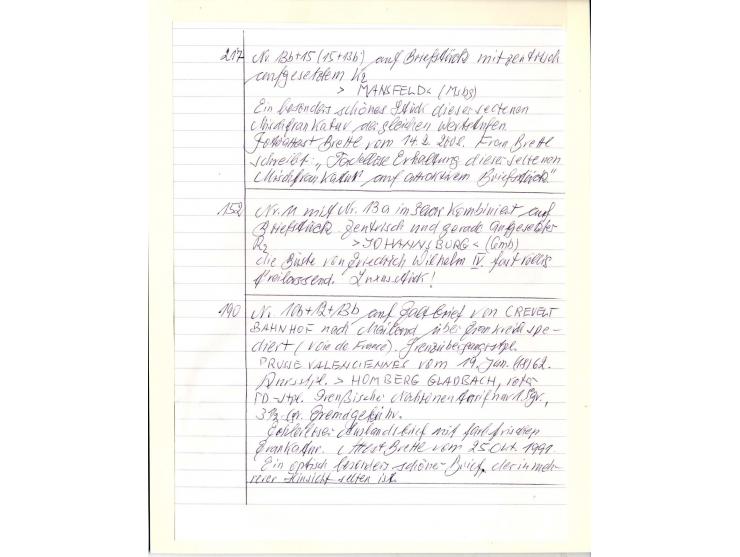 217 Nr. 13b+15 (15+13b) auf Briefstück mit zentrisch
aufgesetztem K2
> MANSFELD < (Msbg)
Ein besonders schönes Stück dieser seltenen
Mischfrankatur der gleichen Wertstufen.
Fotoattest Brettl vom 14.2.2008. Frau Brettl
schreibt: „Tadellose Erhaltung dieser seltenen
Mischfrankatur auf attraktivem Briefstück"
152 Nr. 11 mit Nr. 13a im Paar kombiniert auf
Briefstück. Zentrisch und gerade aufgesetzter
K2 > JOHANNSBURG < (Gmb)
die Büste von Friedrich Wilhelm IV. fast völlig
freilassend. Luxusstück!
190 Nr. 10b+12+13b auf Faltbrief von CREVELT
BAHNHOF nach Mailand über Frankreich spe-
diert (voie de France). Grenzübergangsstpl.
PRUSSE VALENCIENNES vom 19. Jun. (18)62.
> HOMBERG GLADBACH, roter
PD-Stpl. Preußische Nachbarn 1 Sgr.,
3½ Gr. Fremdgebühr.
Fehlerloser Auslandsbrief mit farbfrischer
Frankatur. Attest Brettl vom 25 Okt. 1991
Ein optisch besonders schöner Brief, der in meh-
rerer Hinsicht selten ist.